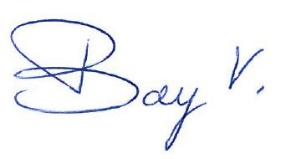 Bay V.